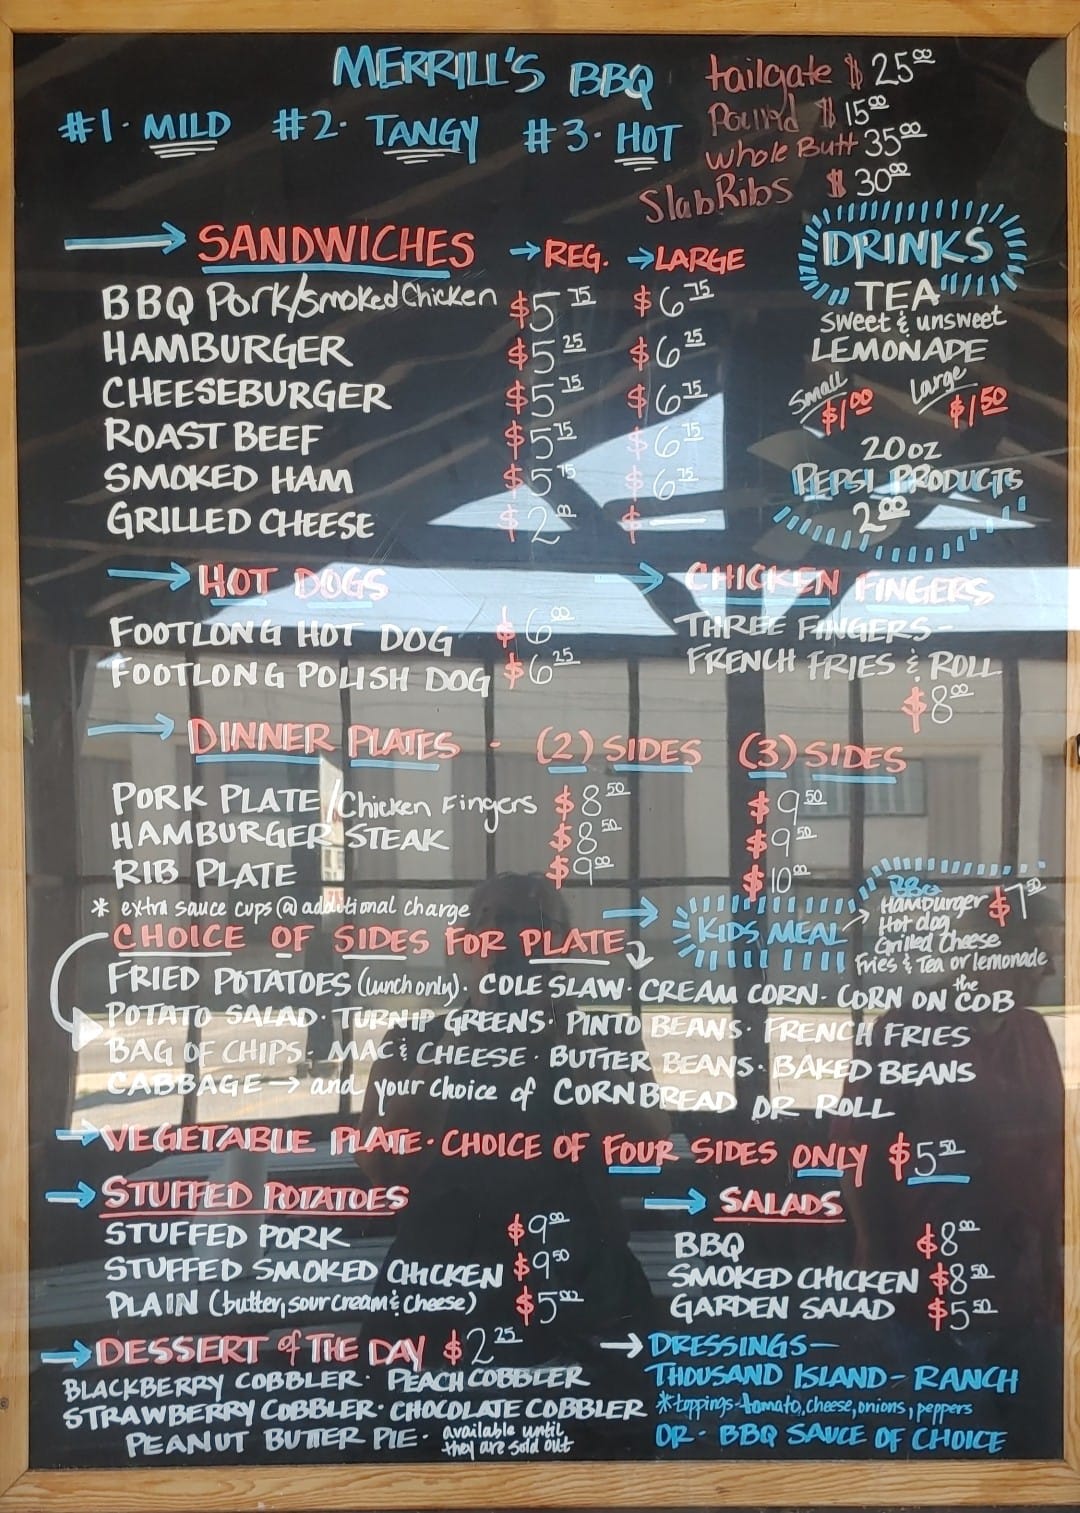 MERRILL'S BBQ
#1. MILD #2. TANGY #3. HOT
tailgate $ 25⁰⁰
Pound $ 15⁰⁰
Whole Butt 35⁰⁰
Slab Ribs $ 30⁰⁰
SANDWICHES → REG. → LARGE
BBQ Pork/Smoked Chicken $5 75 $6 75
HAMBURGER $5 25 $6 25
CHEESEBURGER $5 75 $6 75
ROAST BEEF $5 75 $6 75
SMOKED HAM $5 75 $6 75
GRILLED CHEESE $2 00 $ —
DRINKS
TEA
Sweet & unsweet
LEMONADE
Small Large
$1 00 $1 50
20oz
PEPSI PRODUCTS
2 00
→ HOT DOGS
FOOTLONG HOT DOG $6 00
FOOTLONG POLISH DOG $6 25
→ CHICKEN FINGERS
THREE FINGERS -
FRENCH FRIES & ROLL
$8 00
→ DINNER PLATES - (2) SIDES (3) SIDES
PORK PLATE/Chicken Fingers $8 50 $9 50
HAMBURGER STEAK $8 50 $9 50
RIB PLATE $9 00 $10 00
* extra sauce cups @ additional charge
→ KIDS MEAL → BBQ
Hamburger $7 50
Hot dog
Grilled Cheese
Fries & Tea or lemonade
CHOICE OF SIDES FOR PLATE
FRIED POTATOES (lunch only). COLE SLAW. CREAM CORN. CORN ON the COB
POTATO SALAD. TURNIP GREENS. PINTO BEANS. FRENCH FRIES
BAG OF CHIPS. MAC & CHEESE. BUTTER BEANS. BAKED BEANS
CABBAGE → and your choice of CORNBREAD OR ROLL
→ VEGETABLE PLATE. CHOICE OF FOUR SIDES ONLY $5 50
→ STUFFED POTATOES
STUFFED PORK $9 00
STUFFED SMOKED CHICKEN $9 50
PLAIN (butter, sour cream & cheese) $5 00
→ SALADS
BBQ $8 00
SMOKED CHICKEN $8 50
GARDEN SALAD $5 50
→ DESSERT of THE DAY $2 25
BLACKBERRY COBBLER. PEACH COBBLER
STRAWBERRY COBBLER. CHOCOLATE COBBLER
PEANUT BUTTER PIE. available until
they are sold out
→ DRESSINGS —
THOUSAND ISLAND - RANCH
*toppings-tomato, cheese, onions, peppers
OR. BBQ SAUCE OF CHOICE